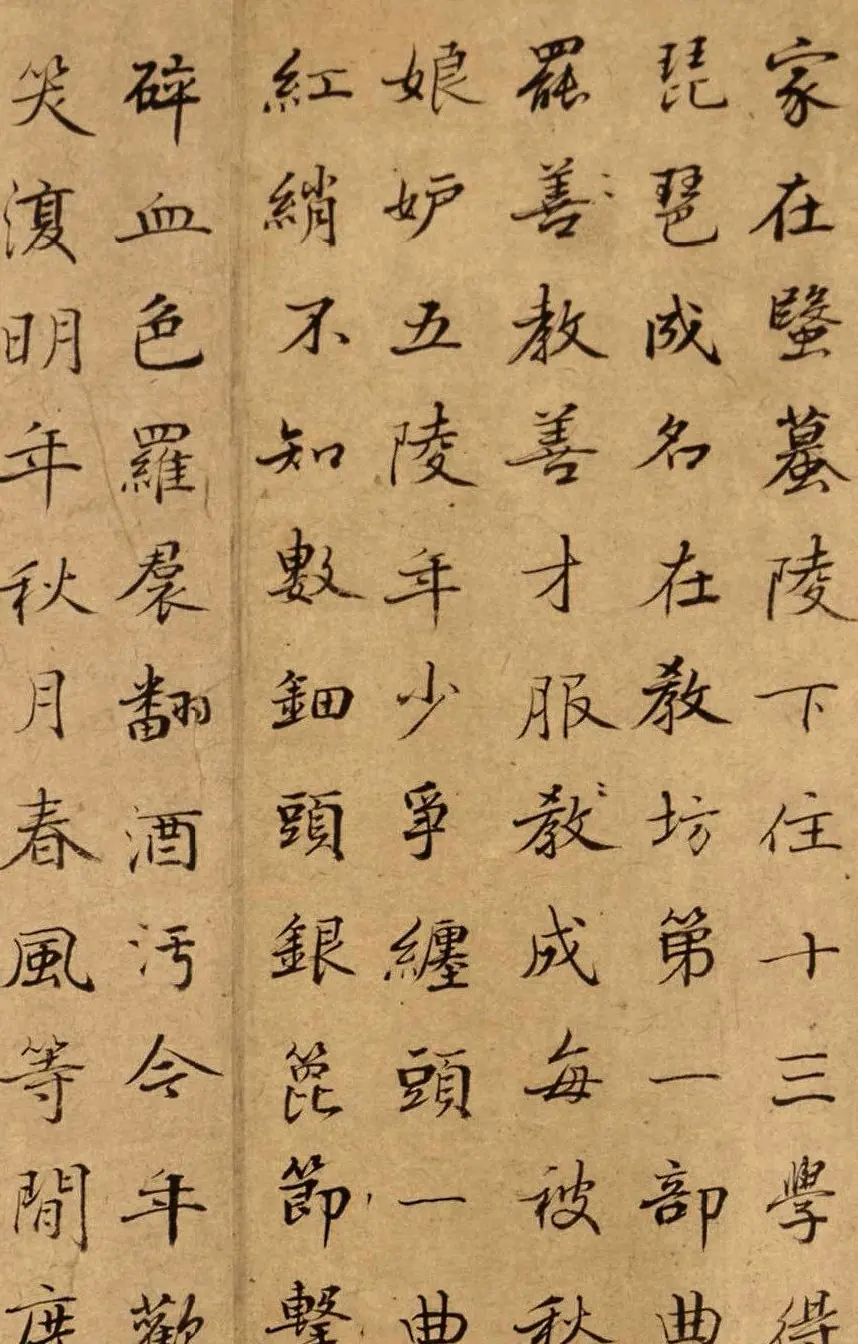 家在蝦蟇陵下住十三學得
琵琶成名在教坊第一部曲
罷善教善才服教成每被秋
娘妒五陵年少爭纏頭一曲
紅綃不知數鈿頭銀篦節擊
碎血色羅裠翻酒污今年歡
笑復明年秋月春風等閒度